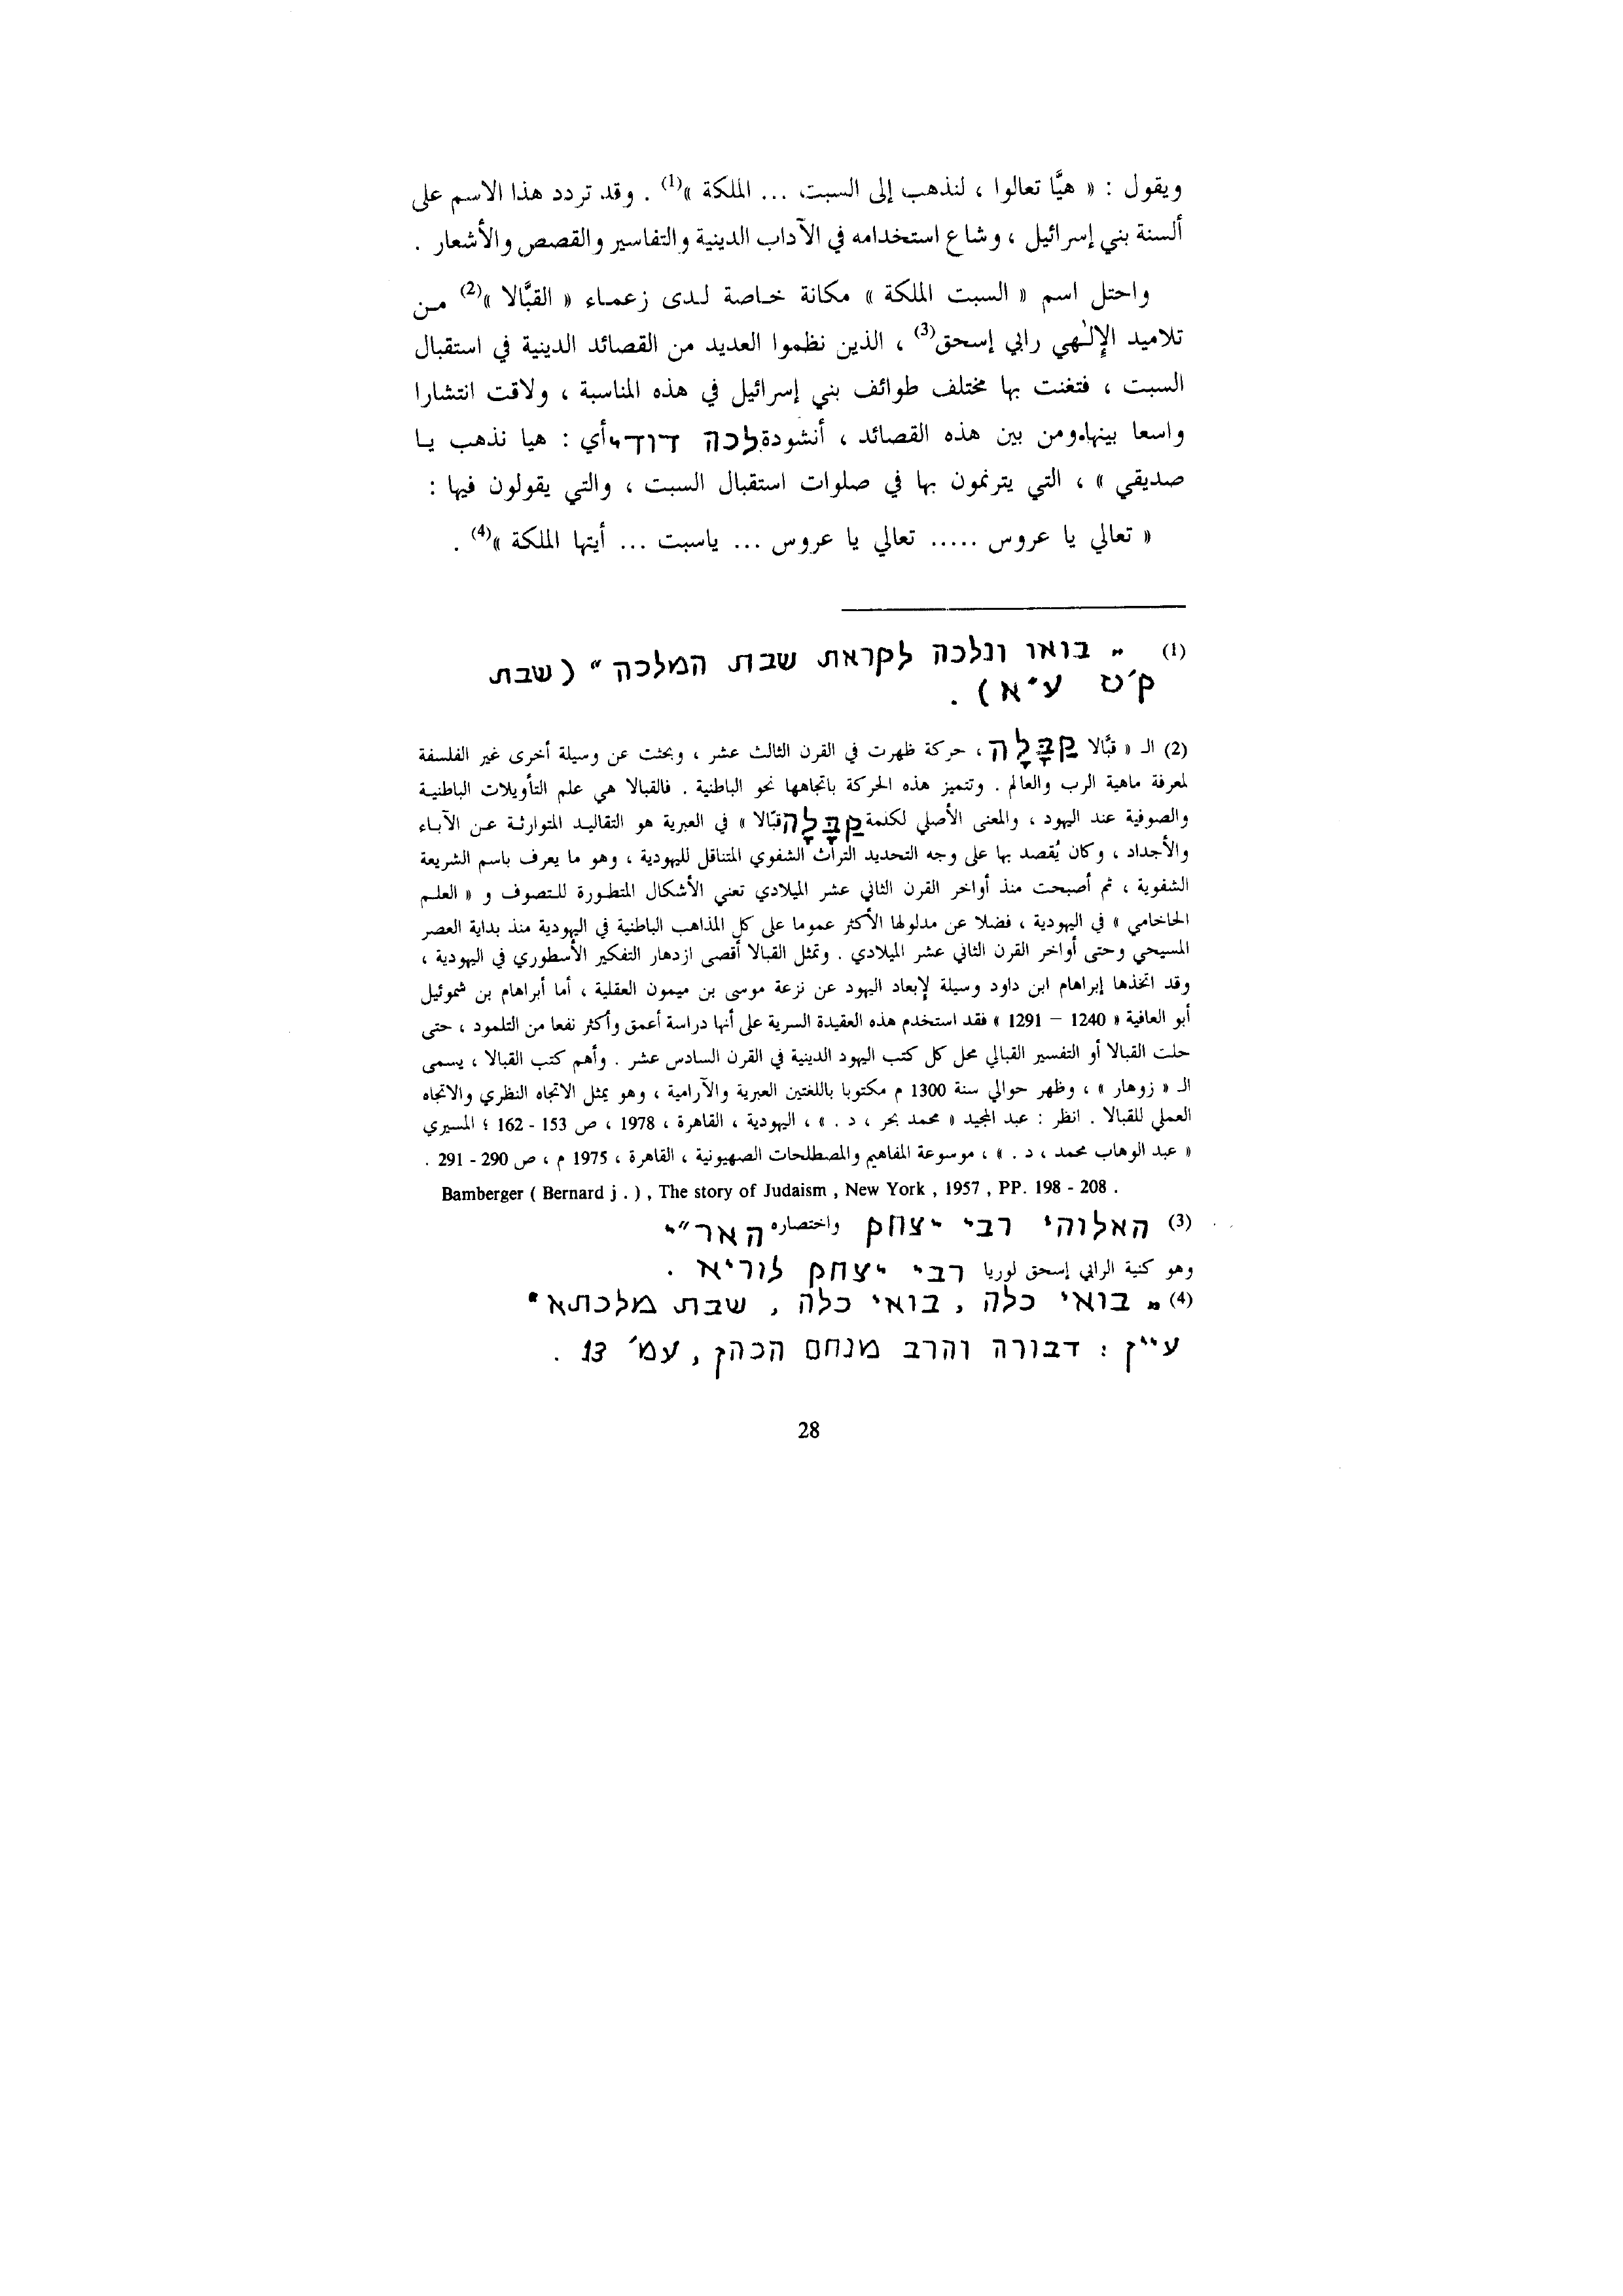 ويقول : « هيَّا تعالوا ، لنذهب إلى السبت ... الملكة »(1) . وقد تردد هذا الاسم على
ألسنة بني إسرائيل ، وشاع استخدامه في الآداب الدينية والتفاسير والقصص والأشعار .
واحتل اسم « السبت الملكة » مكانة خاصة لدى زعماء « القبَّالا »(2) من
تلاميد الإلٰهي رابي إسحق(3) ، الذين نظموا العديد من القصائد الدينية في استقبال
السبت ، فتغنت بها مختلف طوائف بني إسرائيل في هذه المناسبة ، ولاقت انتشارا
واسعا بينها.ومن بين هذه القصائد ، أنشودة לכה דודי أي : هيا نذهب يا
صديقي » ، التي يترنمون بها في صلوات استقبال السبت ، والتي يقولون فيها :
« تعالي يا عروس ..... تعالي يا عروس ... ياسبت ... أيتها الملكة »(4) .
(1) „ בואו ונלכה לקראת שבת המלכה" (שבת
ק'ט ע"א) .
(2) الـ « قبَّالا קַבָּלָה ، حركة ظهرت في القرن الثالث عشر ، وبحثت عن وسيلة أخرى غير الفلسفة
لمعرفة ماهية الرب والعالم . وتتميز هذه الحركة باتجاهها نحو الباطنية . فالقبالا هي علم التأويلات الباطنية
والصوفية عند اليهود ، والمعنى الأصلي لكلمة קַבָּלָה قبّالا » في العبرية هو التقاليد المتوارثة عن الآباء
والأجداد ، وكان يُقصد بها على وجه التحديد التراث الشفوي المتناقل لليهودية ، وهو ما يعرف باسم الشريعة
الشفوية ، ثم أصبحت منذ أواخر القرن الثاني عشر الميلادي تعني الأشكال المتطورة للتصوف و « العلم
الحاخامي » في اليهودية ، فضلا عن مدلولها الأكثر عموما على كل المذاهب الباطنية في اليهودية منذ بداية العصر
المسيحي وحتى أواخر القرن الثاني عشر الميلادي . وتمثل القبالا أقصى ازدهار التفكير الأسطوري في اليهودية ،
وقد اتخذها إبراهام ابن داود وسيلة لإبعاد اليهود عن نزعة موسى بن ميمون العقلية ، أما أبراهام بن شموئيل
أبو العافية « 1240 – 1291 » فقد استخدم هذه العقيدة السرية على أنها دراسة أعمق وأكثر نفعا من التلمود ، حتى
حلت القبالا أو التفسير القبالي محل كل كتب اليهود الدينية في القرن السادس عشر . وأهم كتب القبالا ، يسمى
الـ « زوهار » ، وظهر حوالي سنة 1300 م مكتوبا باللغتين العبرية والآرامية ، وهو يمثل الاتجاه النظري والاتجاه
العملي للقبالا . انظر : عبد المجيد « محمد بحر ، د . » ، اليهودية ، القاهرة ، 1978 ، ص 153 - 162 ؛ المسيري
« عبد الوهاب محمد ، د . » ، موسوعة المفاهيم والمصطلحات الصهيونية ، القاهرة ، 1975 م ، ص 290 - 291 .
Bamberger ( Bernard j . ) , The story of Judaism , New York , 1957 , PP. 198 - 208 .
(3) האלוהי רבי יצחק واختصاره האר"י
وهو كنية الرابي إسحق لوريا רבי יצחק לוריא .
(4) „ בואי כלה , בואי כלה , שבת מלכתא"
עיין : דבורה והרב מנחם הכהן , עמ' 13 .
28